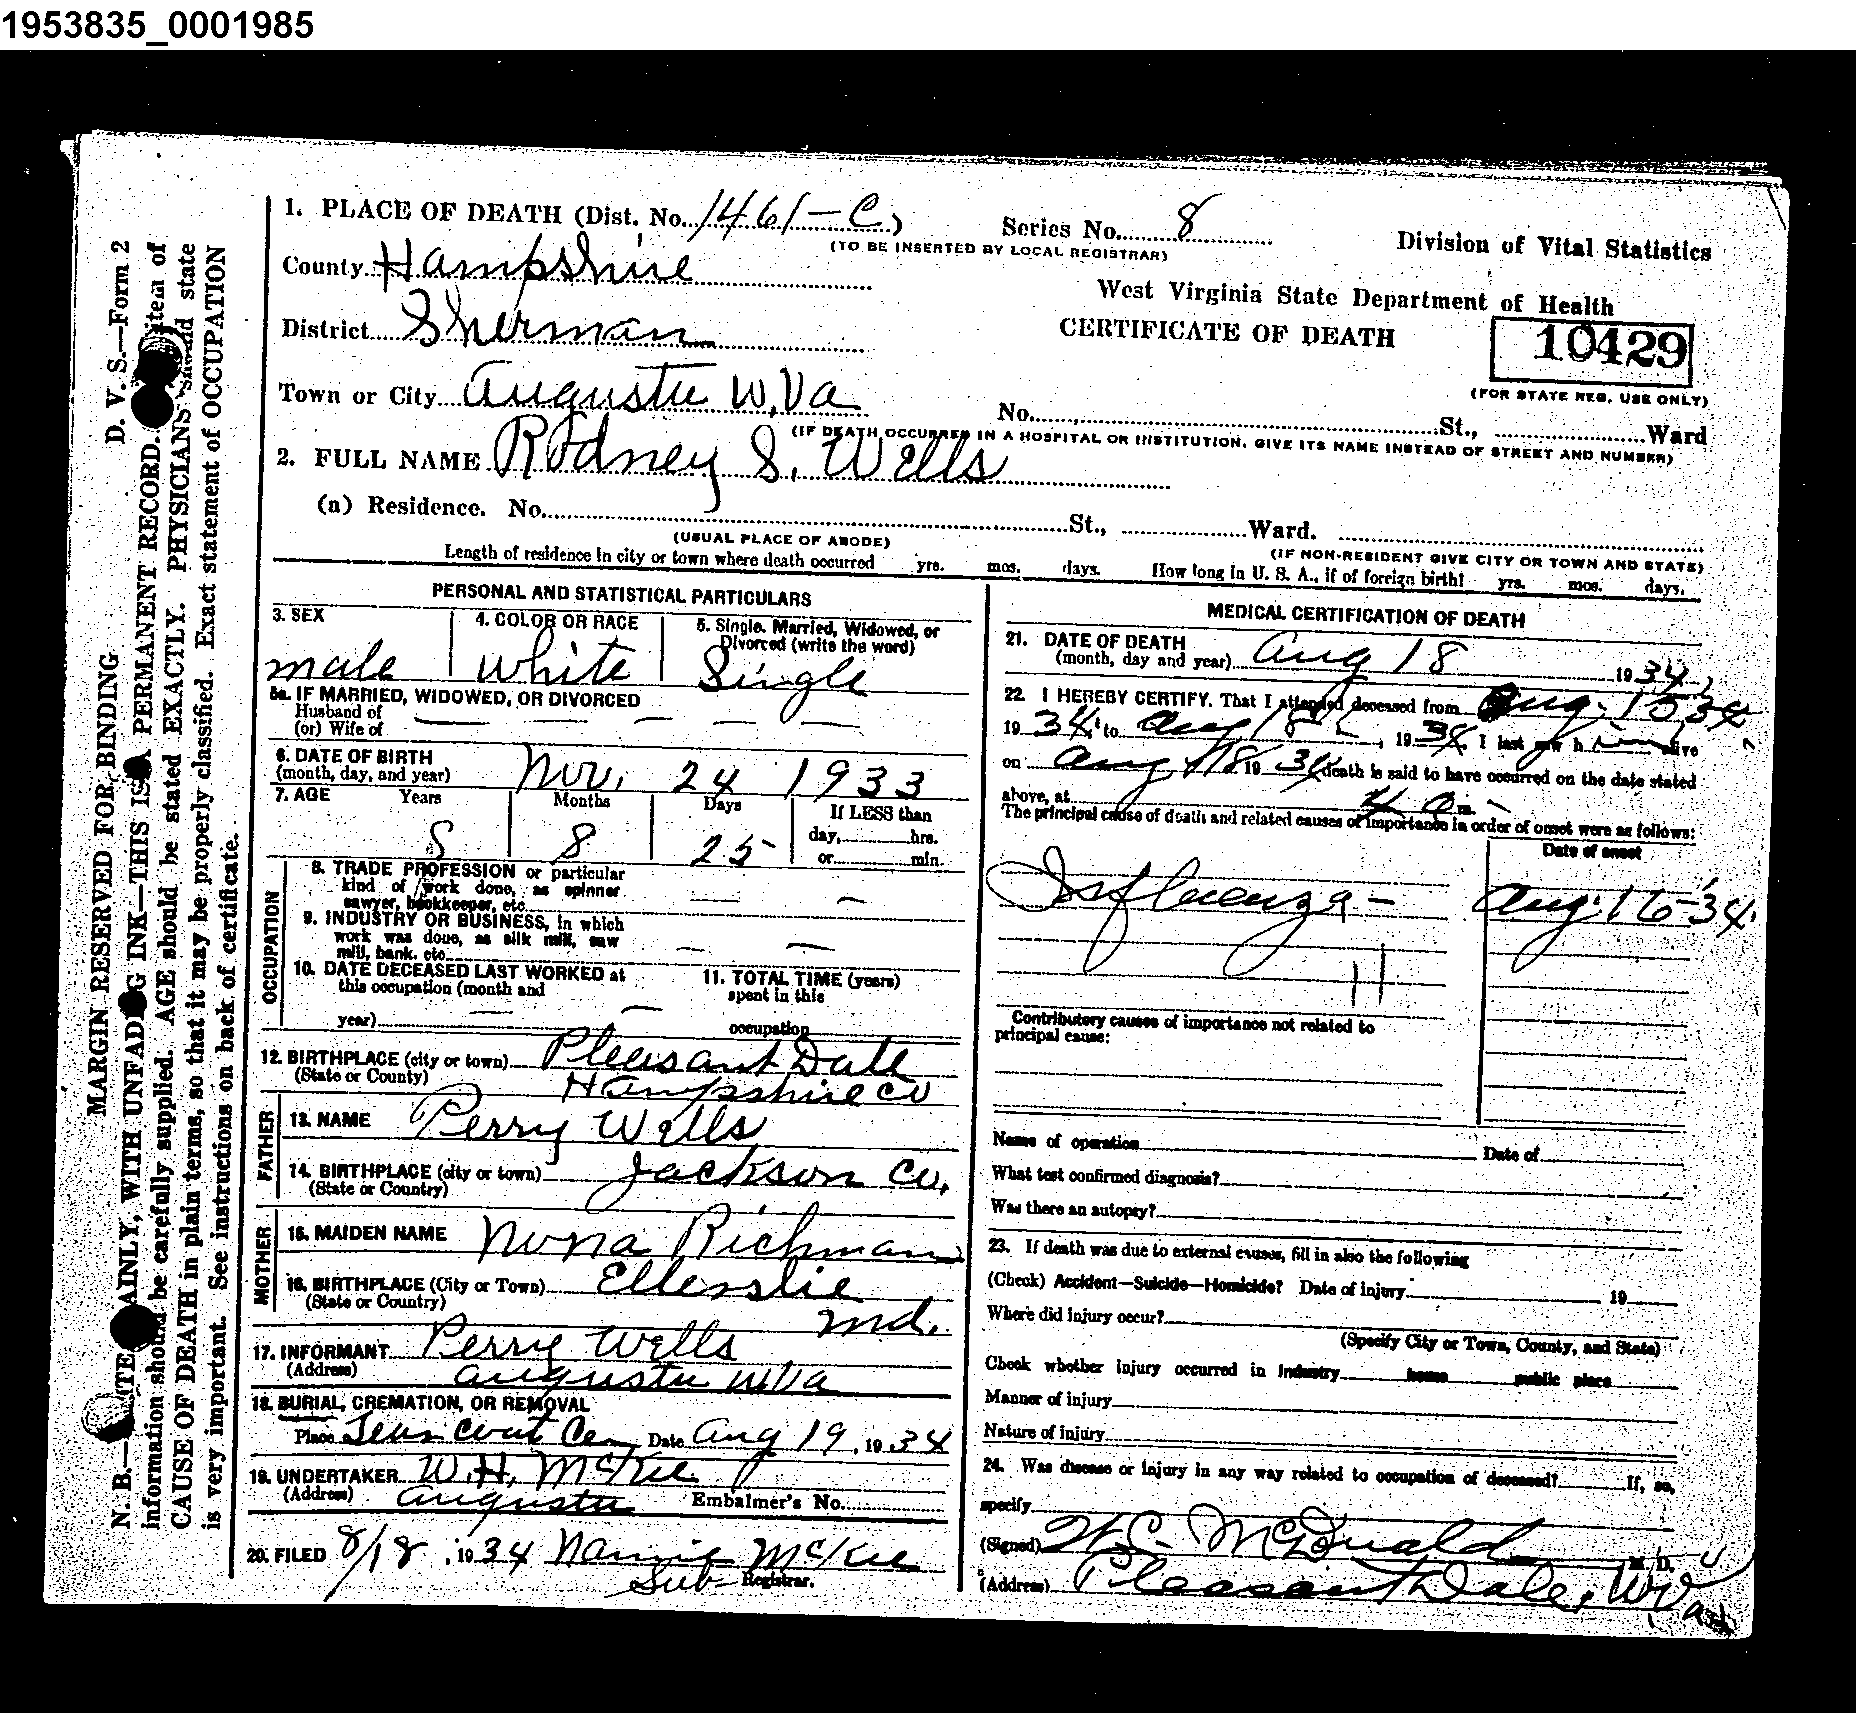 1953835_0001985
1. PLACE OF DEATH (Dist. No. 1461-C)
Series No. 8
(TO BE INSERTED BY LOCAL REGISTRAR)
Division of Vital Statistics
County Hampshire
West Virginia State Department of Health
District Sherman
CERTIFICATE OF DEATH
10429
(FOR STATE REG. USE ONLY)
Town or City Augusta W.Va
No. St., Ward
(IF DEATH OCCURRED IN A HOSPITAL OR INSTITUTION, GIVE ITS NAME INSTEAD OF STREET AND NUMBER)
2. FULL NAME Rodney S. Wells
(a) Residence. No. St., Ward.
(USUAL PLACE OF ABODE)
(IF NON-RESIDENT GIVE CITY OR TOWN AND STATE)
Length of residence in city or town where death occurred yrs. mos. days. How long in U. S. A., if of foreign birth? yrs. mos. days.
PERSONAL AND STATISTICAL PARTICULARS
3. SEX
male
4. COLOR OR RACE
White
5. Single, Married, Widowed, or
Divorced (write the word)
Single
5a. IF MARRIED, WIDOWED, OR DIVORCED
Husband of
(or) Wife of
6. DATE OF BIRTH
(month, day, and year) Nov. 24 1933
7. AGE Years Months Days If LESS than
day, hrs.
or min.
8 25
OCCUPATION
8. TRADE PROFESSION or particular
kind of work done, as spinner
sawyer, bookkeeper, etc.
9. INDUSTRY OR BUSINESS, in which
work was done, as silk mill, saw
mill, bank, etc.
10. DATE DECEASED LAST WORKED at
this occupation (month and
year)
11. TOTAL TIME (years)
spent in this
occupation
12. BIRTHPLACE (city or town) Pleasant Dale
(State or County) Hampshire Co
FATHER
13. NAME Perry Wells
14. BIRTHPLACE (city or town) Jackson Co.
(State or Country)
MOTHER
15. MAIDEN NAME Nona Richman
16. BIRTHPLACE (City or Town) Ellerslie
(State or Country) Md.
17. INFORMANT Perry Wells
(Address) Augusta W.Va
18. BURIAL, CREMATION, OR REMOVAL
Place Tearcoat Cem Date Aug 19, 1934
19. UNDERTAKER W.H. McKee
(Address) Augusta Embalmer's No.
20. FILED 8/18, 1934 Nannie McKee
Sub- Registrar.
MEDICAL CERTIFICATION OF DEATH
21. DATE OF DEATH
(month, day and year) Aug 18 1934
22. I HEREBY CERTIFY, That I attended deceased from Aug. 15 34
1934, to Aug 18, 1934 I last saw him alive
on Aug 18 1934 death is said to have occurred on the date stated
above, at 4 a m.
The principal cause of death and related causes of importance in order of onset were as follows:
Date of onset
Influenza- Aug. 16-'34.
11
Contributory causes of importance not related to
principal cause:
Name of operation Date of
What test confirmed diagnosis?
Was there an autopsy?
23. If death was due to external causes, fill in also the following
(Check) Accident—Suicide—Homicide? Date of injury 19
Where did injury occur?
(Specify City or Town, County, and State)
Check whether injury occurred in industry home public place
Manner of injury
Nature of injury
24. Was disease or injury in any way related to occupation of deceased? If, so,
specify
(Signed) McDonald M. D.
(Address) Pleasant Dale, W.Va
MARGIN RESERVED FOR BINDING D. V. S.—Form 2
N. B.— AINLY, WITH UNFADING INK—THIS IS A PERMANENT RECORD. item of
information should be carefully supplied. AGE should be stated EXACTLY. PHYSICIANS should state
CAUSE OF DEATH in plain terms, so that it may be properly classified. Exact statement of OCCUPATION
is very important. See instructions on back of certificate.